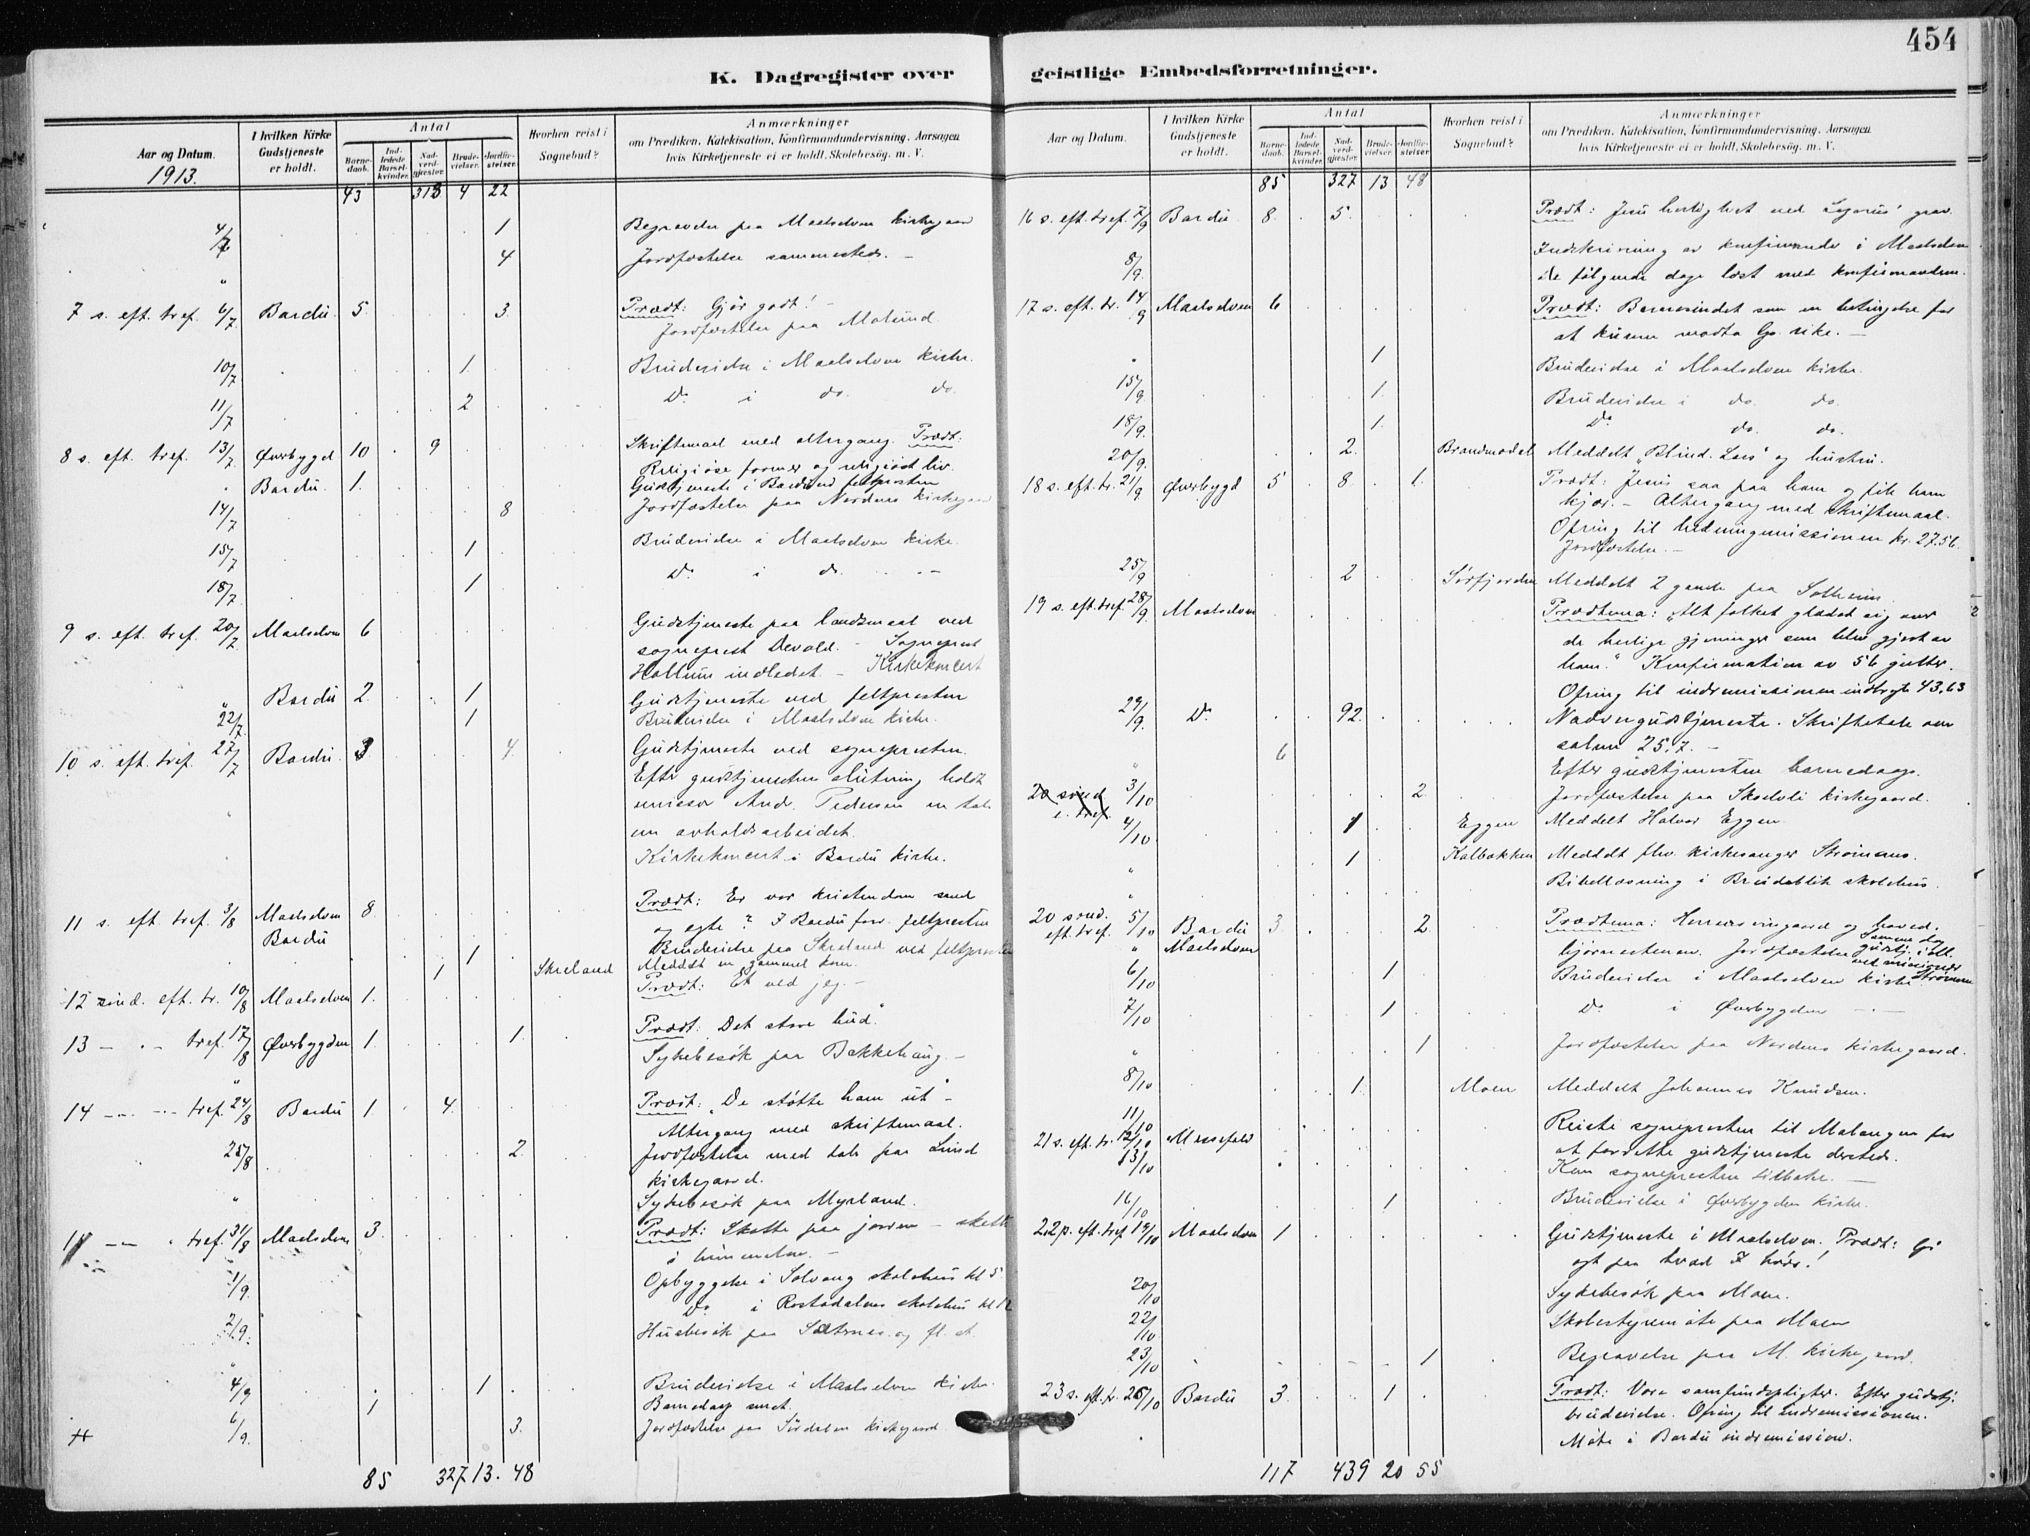 454
K. Dagregister over
Aar og Datum.
1913.
I hvilken Kirke Gudstjeneste er holdt.
Antal
Barne-daab.
Ind-ledede Barsel-kvinder.
Nad-verd-gjæster.
Brude-vielser.
Jordfæ-stelser.
Hvorhen reist i Sognebud?
Anmærkninger
om Prædiken, Katekisation, Konfirmandundervisning, Aarsagen
hvis Kirketjeneste ei er holdt, Skolebesøg. m. V.
43 313 4 22
4/7 1 Begravelse paa Maalselven kirkegaard
" 4 Jordfæstelse sammesteds. —
7 s. eft. tref. 6/7 Bardu. 5. 3. Prædt: Gjør godt! —
Jordfæstelse paa
10/7 1 Brudevielse i Maalselven kirke.
11/7 2 Do i do. do.
8 s. eft. tref. 13/7 Øverbygd 10 9 Skriftemaal med altergang. Prædt:
Religiøse former og religiøst liv.
Bardu. 1. Gudstjeneste i Bardu ved feltpresten
14/7 8 Jordfæstelse paa Nordmo kirkegaard
15/7 1 Brudevielse i Maalselven kirke.
18/7 1 Do i do. — —
9 s. eft. tref. 20/7 Maalselven 6 Gudstjeneste paa landsmaal ved
sogneprest Devold. — Sogneprest
indledet — Kirkekoncert
" Bardu 2. 1 Gudstjeneste ved feltpresten
22/7 1 Brudevielse i Maalselven kirke.
10 s. eft. tref. 27/7 Bardu. 3. 4. Gudstjeneste ved sognepresten.
Efter gudstjenesten slutning holdt
And. Pedersen en tale
om avholdsarbeidet.
Kirkekoncert i Bardu kirke.
11 s. eft tref. 3/8 Maalselven 8. Prædt: Er vor kristendom sand
og egte? I Bardu forr. feltpresten
Bardu 1 Brudevielse paa Skreland ved feltpresten
1 Skreland Meddelt en gammel kone.
12 sønd. eft. tr. 10/8 Maalselven 1. Prædt: Et ved jeg. —
13 — . — tref. 17/8 Øverbygden 1. 1. Prædt: Det store bud.
" Sykebesøk paa Bakkehaug. —
14 — — — tref. 24/8 Bardu 1 4. Prædt: "De støtte ham ut" —
Altergang med skriftemaal.
25/8 2. Jordfæstelse med tale paa Lund
kirkegaard.
" Sykebesøk paa Myrland.
— — " tref. 31/8 Maalselven 3. Prædt: Skatte paa jorden — skatte
i himmelen. —
1/9. Opbyggelse i Solvang skolehus kl 5
Do i Rostadalens skolehus kl
2/9. Husbesøk paa Sætermo og fl. st.
4/9 1 Brudevielse i Maalselven kirke.
1 Barnedaap
6/9. 3. Jordfæstelse paa Sørdalen kirkegaard.
85 327 13. 48
geistlige Embedsforretninger.
Aar og Datum.
I hvilken Kirke Gudstjeneste er holdt.
Antal
Barne-daab.
Ind-ledede Barsel-kvinder.
Nad-verd-gjæster.
Brude-vielser.
Jordfæ-stelser.
Hvorhen reist i Sognebud?
Anmærkninger
om Prædiken, Katekisation, Konfirmandundervisning, Aarsagen
hvis Kirketjeneste ei er holdt, Skolebesøg. m. V.
85 327 13 48
16 s. eft. tref. 7/9 Bardu. 8. 5. Prædt: Jesu herlighet ved Lazarus' grav.
Indskrivning av konfirmander i Maalselven
8/9. De følgende dage læst med konfirmanderne.
17 s. eft. tr. 14/9 Maalselven 6 Prædt: Barnesindet som en betingelse for
at kunne modta Gs. rike. —
" 1 Brudevielse i Maalselven kirke.
15/9. 1. Brudevielse i do. do.
18/9. 1. Do. do. do.
20/9. 2. Brandmodal Meddelt "Blind. Lars" og hustru.
18 s. eft. tr. 21/9 Øverbygd 5 8 1. Prædt: Jesus saa paa ham og fik ham
kjær. — Altergang med skriftemaal.
Ofring til hedningemissionen kr. 27.56
Jordfæstelse. —
25/9 2 Sørfjorden Meddelt 2 gamle paa Solheim.
19 s. eft. tref. 28/9 Maalselven Prædtema: "Alt folket glædet sig over
de herlige gjerninger som blev gjort av
ham." Konfirmation av 56 gutter.
Ofring til indremissionen indbragte 43,63
29/9. Do. 92. Nadvergudstjeneste. Skriftetale over
salme 25,7. —
" 6 Efter gudstjenesten barnedaap.
3/10 2. Jordfæstelse paa Skodvli kirkegaard.
4/10 1 Eggen Meddelt Halvor Eggen.
" 1 Kalbakken Meddelt fhv. kirkesanger Strømans.
Bibellæsning i Brudeslit skolehus.
20 sønd. eft. tref. 5/10 Bardu 3. 2. Prædtema: Herrens vingaard og hoved.
" Maalselven hjørnestenen. Jordfæstelse Samme dag gudstj. i M. ved missionær Strømme
6/10 1 Brudevielse i Maalselven kirke
7/10 1 Do i Øverbygden — . —
" 1 Jordfæstelse paa Nordmo kirkegaard.
8/10 1. Moen Meddelt Johannes Knudsen.
11/10 Reiste sognepresten til Malangen for
21 s. eft. tr. 12/10 at forrette gudstjeneste dersteds.
13/10 Kom sognepresten tilbake. —
16/10 1 Brudevielse i Øverbygden kirke.
22 s. eft. tref 19/10 Maalselven 1 Gudstjeneste i Maalselven. Prædt: Gi
agt paa hvad I hører!
20/10 Sykebesøk paa Moen.
22/10 Skolestyremøte paa Moen
23/10 1 Begravelse paa M. kirkegaard.
23 s. eft. tr. 26/10 Bardu 3. 1 Prædt: Vore samfundspligter. Efter gudstj.
brudevielse. Ofring til indremissionen.
Møte i Bardu indremission.
117 439 20 55